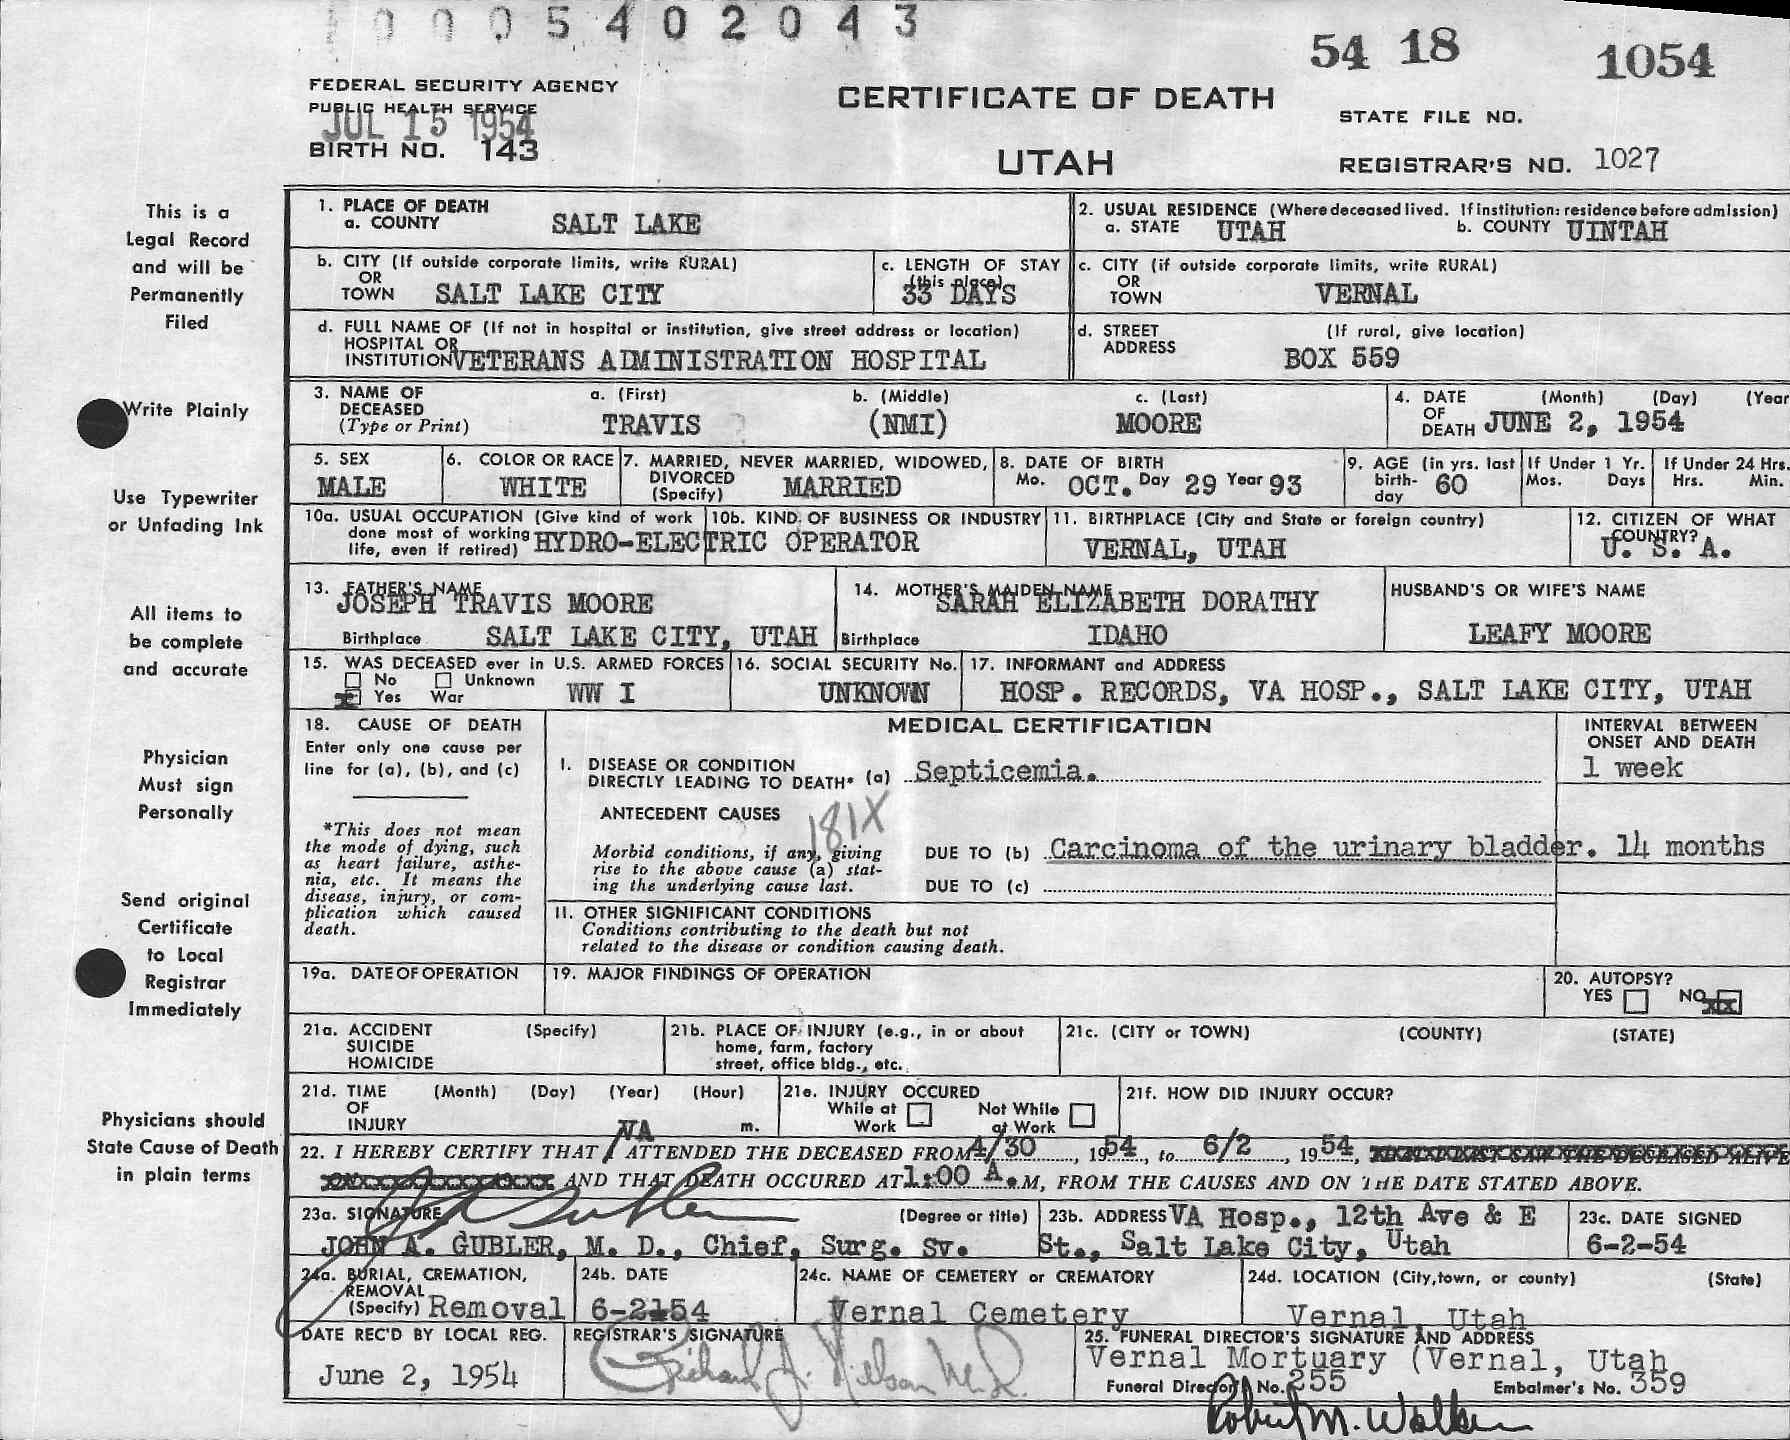 0005402043
54 18 1054
FEDERAL SECURITY AGENCY
PUBLIC HEALTH SERVICE
JUL 15 1954
BIRTH NO. 143
CERTIFICATE OF DEATH
UTAH
STATE FILE NO.
REGISTRAR'S NO. 1027
This is a
Legal Record
and will be
Permanently
Filed
Write Plainly
Use Typewriter
or Unfading Ink
All items to
be complete
and accurate
Physician
Must sign
Personally
Send original
Certificate
to Local
Registrar
Immediately
Physicians should
State Cause of Death
in plain terms
1. PLACE OF DEATH
a. COUNTY SALT LAKE
2. USUAL RESIDENCE (Where deceased lived. If institution: residence before admission)
a. STATE UTAH b. COUNTY UINTAH
b. CITY (If outside corporate limits, write RURAL)
OR
TOWN SALT LAKE CITY
c. LENGTH OF STAY
(this place)
33 DAYS
c. CITY (if outside corporate limits, write RURAL)
OR
TOWN VERNAL
d. FULL NAME OF (If not in hospital or institution, give street address or location)
HOSPITAL OR
INSTITUTION VETERANS ADMINISTRATION HOSPITAL
d. STREET (If rural, give location)
ADDRESS BOX 559
3. NAME OF a. (First) b. (Middle) c. (Last)
DECEASED
(Type or Print) TRAVIS (NMI) MOORE
4. DATE (Month) (Day) (Year
OF
DEATH JUNE 2, 1954
5. SEX
MALE
6. COLOR OR RACE
WHITE
7. MARRIED, NEVER MARRIED, WIDOWED,
DIVORCED
(Specify) MARRIED
8. DATE OF BIRTH
Mo. OCT. Day 29 Year 93
9. AGE (in yrs. last
birth-
day 60
If Under 1 Yr.
Mos. Days
If Under 24 Hrs.
Hrs. Min.
10a. USUAL OCCUPATION (Give kind of work
done most of working
life, even if retired)
10b. KIND OF BUSINESS OR INDUSTRY
HYDRO-ELECTRIC OPERATOR
11. BIRTHPLACE (City and State or foreign country)
VERNAL, UTAH
12. CITIZEN OF WHAT
COUNTRY?
U. S. A.
13. FATHER'S NAME
JOSEPH TRAVIS MOORE
Birthplace SALT LAKE CITY, UTAH
14. MOTHER'S MAIDEN NAME
SARAH ELIZABETH DORATHY
Birthplace IDAHO
HUSBAND'S OR WIFE'S NAME
LEAFY MOORE
15. WAS DECEASED ever in U.S. ARMED FORCES
No Unknown
x Yes War WW I
16. SOCIAL SECURITY No.
UNKNOWN
17. INFORMANT and ADDRESS
HOSP. RECORDS, VA HOSP., SALT LAKE CITY, UTAH
18. CAUSE OF DEATH
Enter only one cause per
line for (a), (b), and (c)
*This does not mean
the mode of dying, such
as heart failure, asthe-
nia, etc. It means the
disease, injury, or com-
plication which caused
death.
MEDICAL CERTIFICATION
INTERVAL BETWEEN
ONSET AND DEATH
I. DISEASE OR CONDITION
DIRECTLY LEADING TO DEATH* (a) Septicemia. 1 week
ANTECEDENT CAUSES
181X
Morbid conditions, if any, giving
rise to the above cause (a) stat-
ing the underlying cause last.
DUE TO (b) Carcinoma of the urinary bladder. 14 months
DUE TO (c)
II. OTHER SIGNIFICANT CONDITIONS
Conditions contributing to the death but not
related to the disease or condition causing death.
19a. DATE OF OPERATION
19. MAJOR FINDINGS OF OPERATION
20. AUTOPSY?
YES NO XX
21a. ACCIDENT (Specify)
SUICIDE
HOMICIDE
21b. PLACE OF INJURY (e.g., in or about
home, farm, factory
street, office bldg., etc.
21c. (CITY or TOWN) (COUNTY) (STATE)
21d. TIME (Month) (Day) (Year) (Hour)
OF
INJURY m.
21e. INJURY OCCURED
While at Work Not While at Work
21f. HOW DID INJURY OCCUR?
VA
22. I HEREBY CERTIFY THAT I ATTENDED THE DECEASED FROM 4/30, 1954, to 6/2, 1954,
AND THAT DEATH OCCURED AT 1:00 A.M, FROM THE CAUSES AND ON THE DATE STATED ABOVE.
23a. SIGNATURE (Degree or title)
JOHN A. GUBLER, M. D., Chief, Surg. Sv.
23b. ADDRESS VA Hosp., 12th Ave & E
St., Salt Lake City, Utah
23c. DATE SIGNED
6-2-54
24a. BURIAL, CREMATION,
REMOVAL
(Specify) Removal
24b. DATE
6-2-54
24c. NAME OF CEMETERY or CREMATORY
Vernal Cemetery
24d. LOCATION (City, town, or county) (State)
Vernal, Utah
DATE REC'D BY LOCAL REG.
June 2, 1954
REGISTRAR'S SIGNATURE
Richard J. Nelson M.D.
25. FUNERAL DIRECTOR'S SIGNATURE AND ADDRESS
Vernal Mortuary (Vernal, Utah
Funeral Director No. 255 Embalmer's No. 359
Robert M. Walker